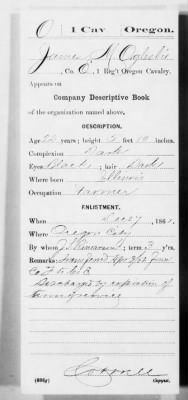 O | 1 Cav | Oregon.
James
, Co. , 1 Reg't Oregon Cavalry.
Appears on
Company Descriptive Book
of the organization named above.
DESCRIPTION.
Age 22 years; height 5 feet 10 inches.
Complexion Dark
Eyes Black; hair Dark
Where born Illinois
Occupation Farmer
ENLISTMENT.
When Dec 27, 1861.
Where Oregon City
By whom ; term 3 y'rs.
Remarks: Transferred from
Co.
Discharged by expiration of
term of service
(383g) Copyist.